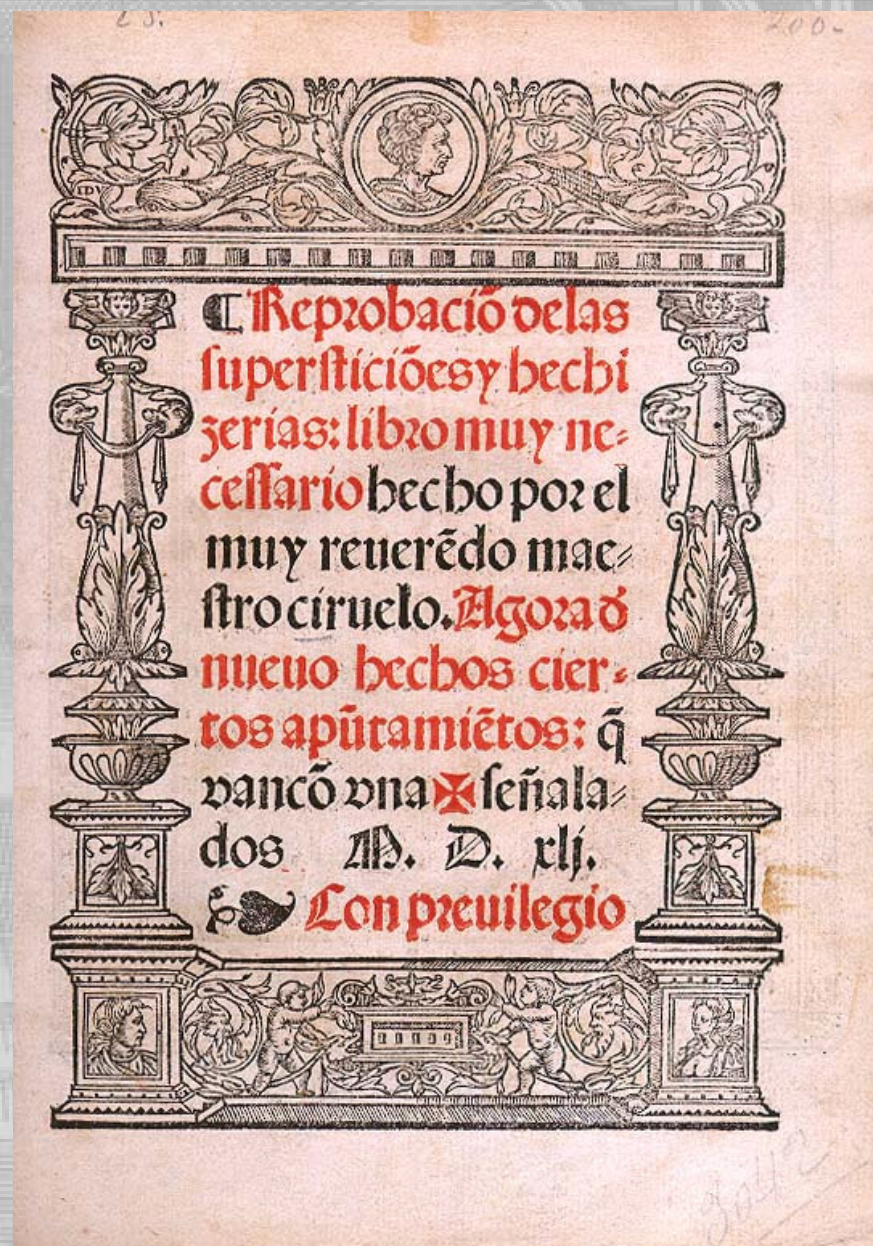 ¶ Reprobaciõ delas
supersticiões y hechi
zerias: libro muy ne-
cessario hecho por el
muy reuerẽdo mae-
stro ciruelo. Agora ď
nueuo hechos cier-
tos apũtamiẽtos: q̃
van cõ vna ✠ señala-
dos M. D. xlj.
❧ Con preuilegio